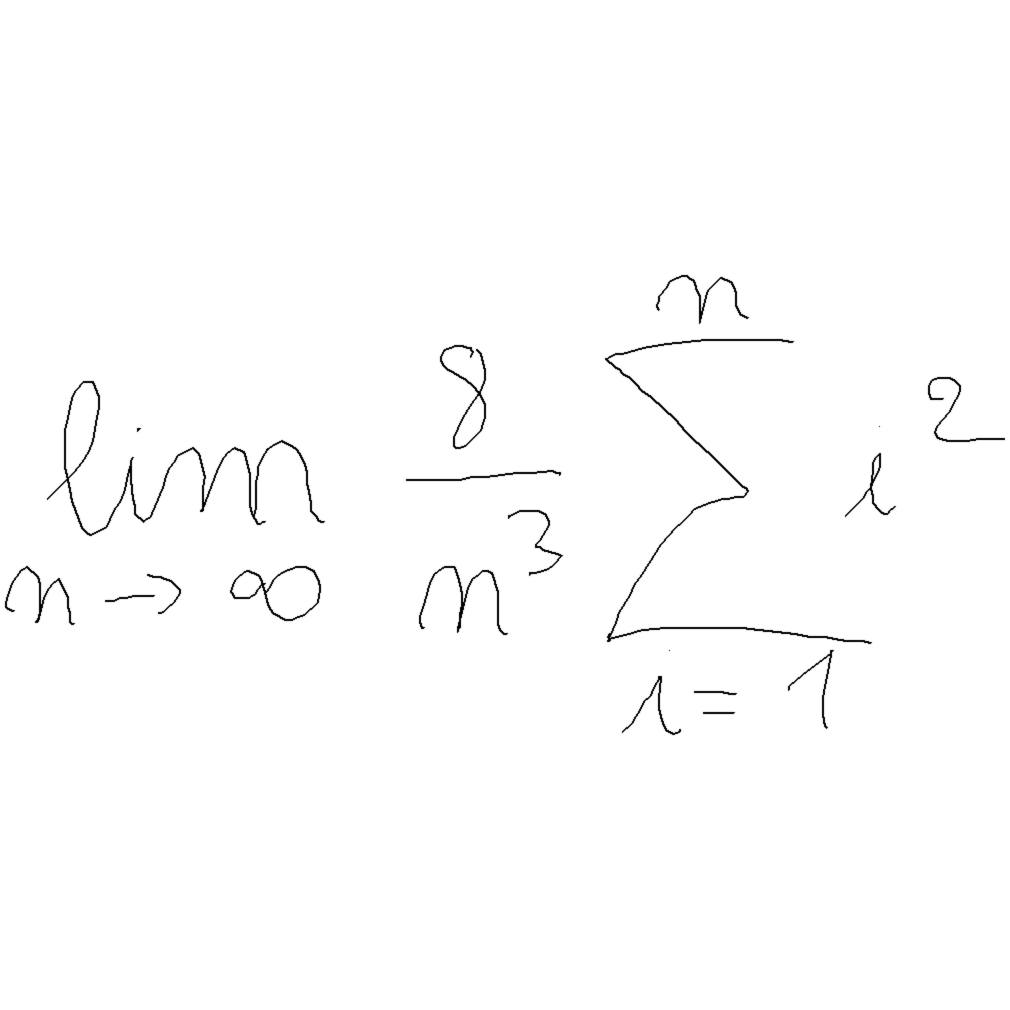 $\lim_{n \to \infty} \frac{8}{n^3} \sum_{i=1}^{n} i^2$